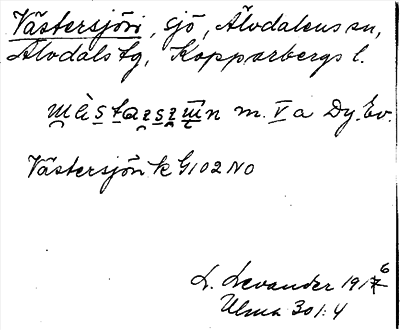 Västersjöri, sjö, Älvdalens sn,
Älvdals tg, Kopparbergs l.
m. V a Dy. Ev.
Västersjön k G102 NO
L. Levander 1916
Ulma 301:4